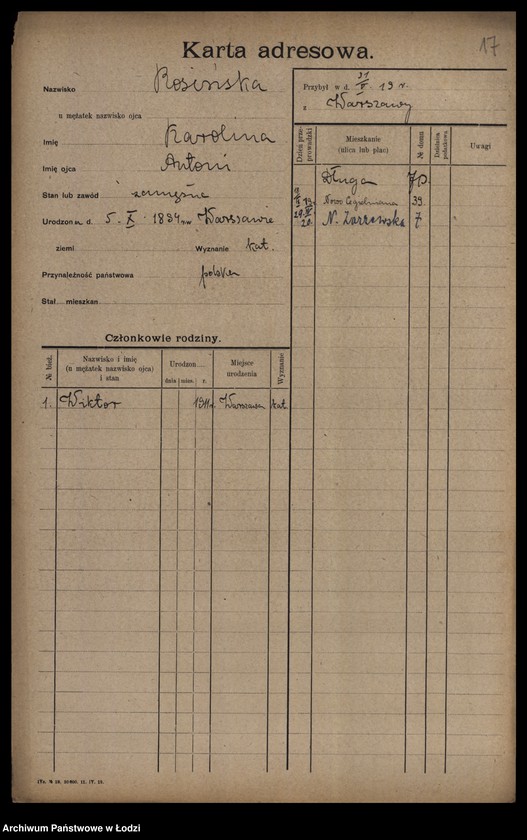 17
Karta adresowa.
Nazwisko Rosińska
u mężatek nazwisko ojca
Imię Karolina
Imię ojca Antoni
Stan lub zawód zamężna
Urodzona d. 5. X. 1884 r. w Warszawie
ziemi Wyznanie kat.
Przynależność państwowa polska
Stał. mieszkan
Przybył w d. 31 V. 19 r.
z Warszawy
Dzień przeprowadzki
Mieszkanie (ulica lub plac)
№ domu
Dzielnica podatkowa
Uwagi
Długa
Nowo Cegielniana 39.
N. Zarzewska 7
Członkowie rodziny.
№ bież.
Nazwisko i imię (u mężatek nazwisko ojca) i stan
Urodzon
dnia mies. r.
Miejsce urodzenia
Wyznanie
1. Wiktor 1911 r. Warszawa kat.
Archiwum Państwowe w Łodzi